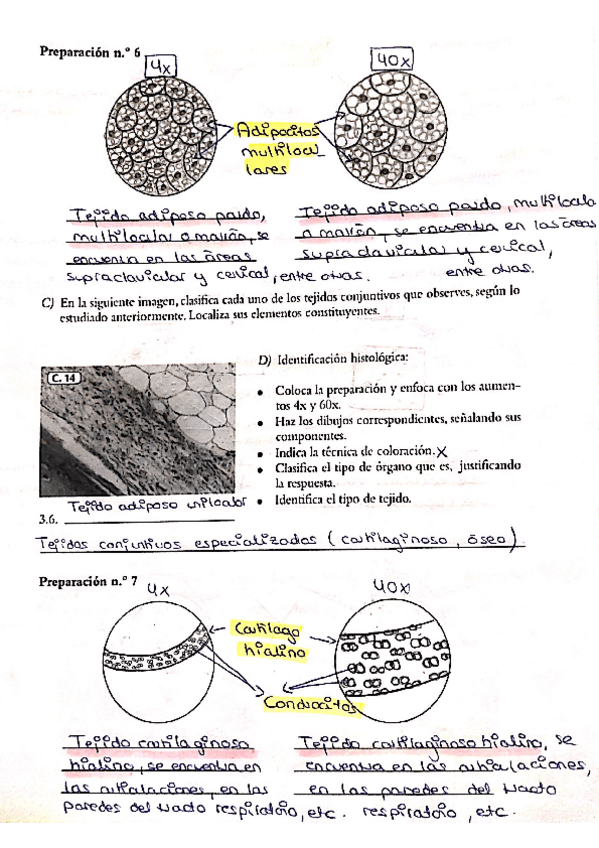 Preparación n.º 6
4x
40x
Adipocitos
multilocu_
lares
Tejido adiposo pardo,
multilocular o marrón, se
encuentra en las áreas
supraclavicular y cervical, entre otras.
Tejido adiposo pardo, multilocula
o marrón, se encuentra en las áreas
supraclavicular y cervical,
entre otras.
C) En la siguiente imagen, clasifica cada uno de los tejidos conjuntivos que observes, según lo
estudiado anteriormente. Localiza sus elementos constituyentes.
C. 14
Tejido adiposo unilocular
D) Identificación histológica:
• Coloca la preparación y enfoca con los aumen-
tos 4x y 60x.
• Haz los dibujos correspondientes, señalando sus
componentes.
• Indica la técnica de coloración. X
• Clasifica el tipo de órgano que es, justificando
la respuesta.
• Identifica el tipo de tejido.
3.6.
Tejidos conjuntivos especializados (cartilaginoso, óseo)
Preparación n.º 7
4x
40x
Cartílago
hialino
Condrocitos
Tejido cartilaginoso
hialino, se encuentra en
las articulaciones, en las
paredes del tracto respiratorio, etc.
Tejido cartilaginoso hialino, se
encuentra en las articulaciones,
en las paredes del tracto
respiratorio, etc.